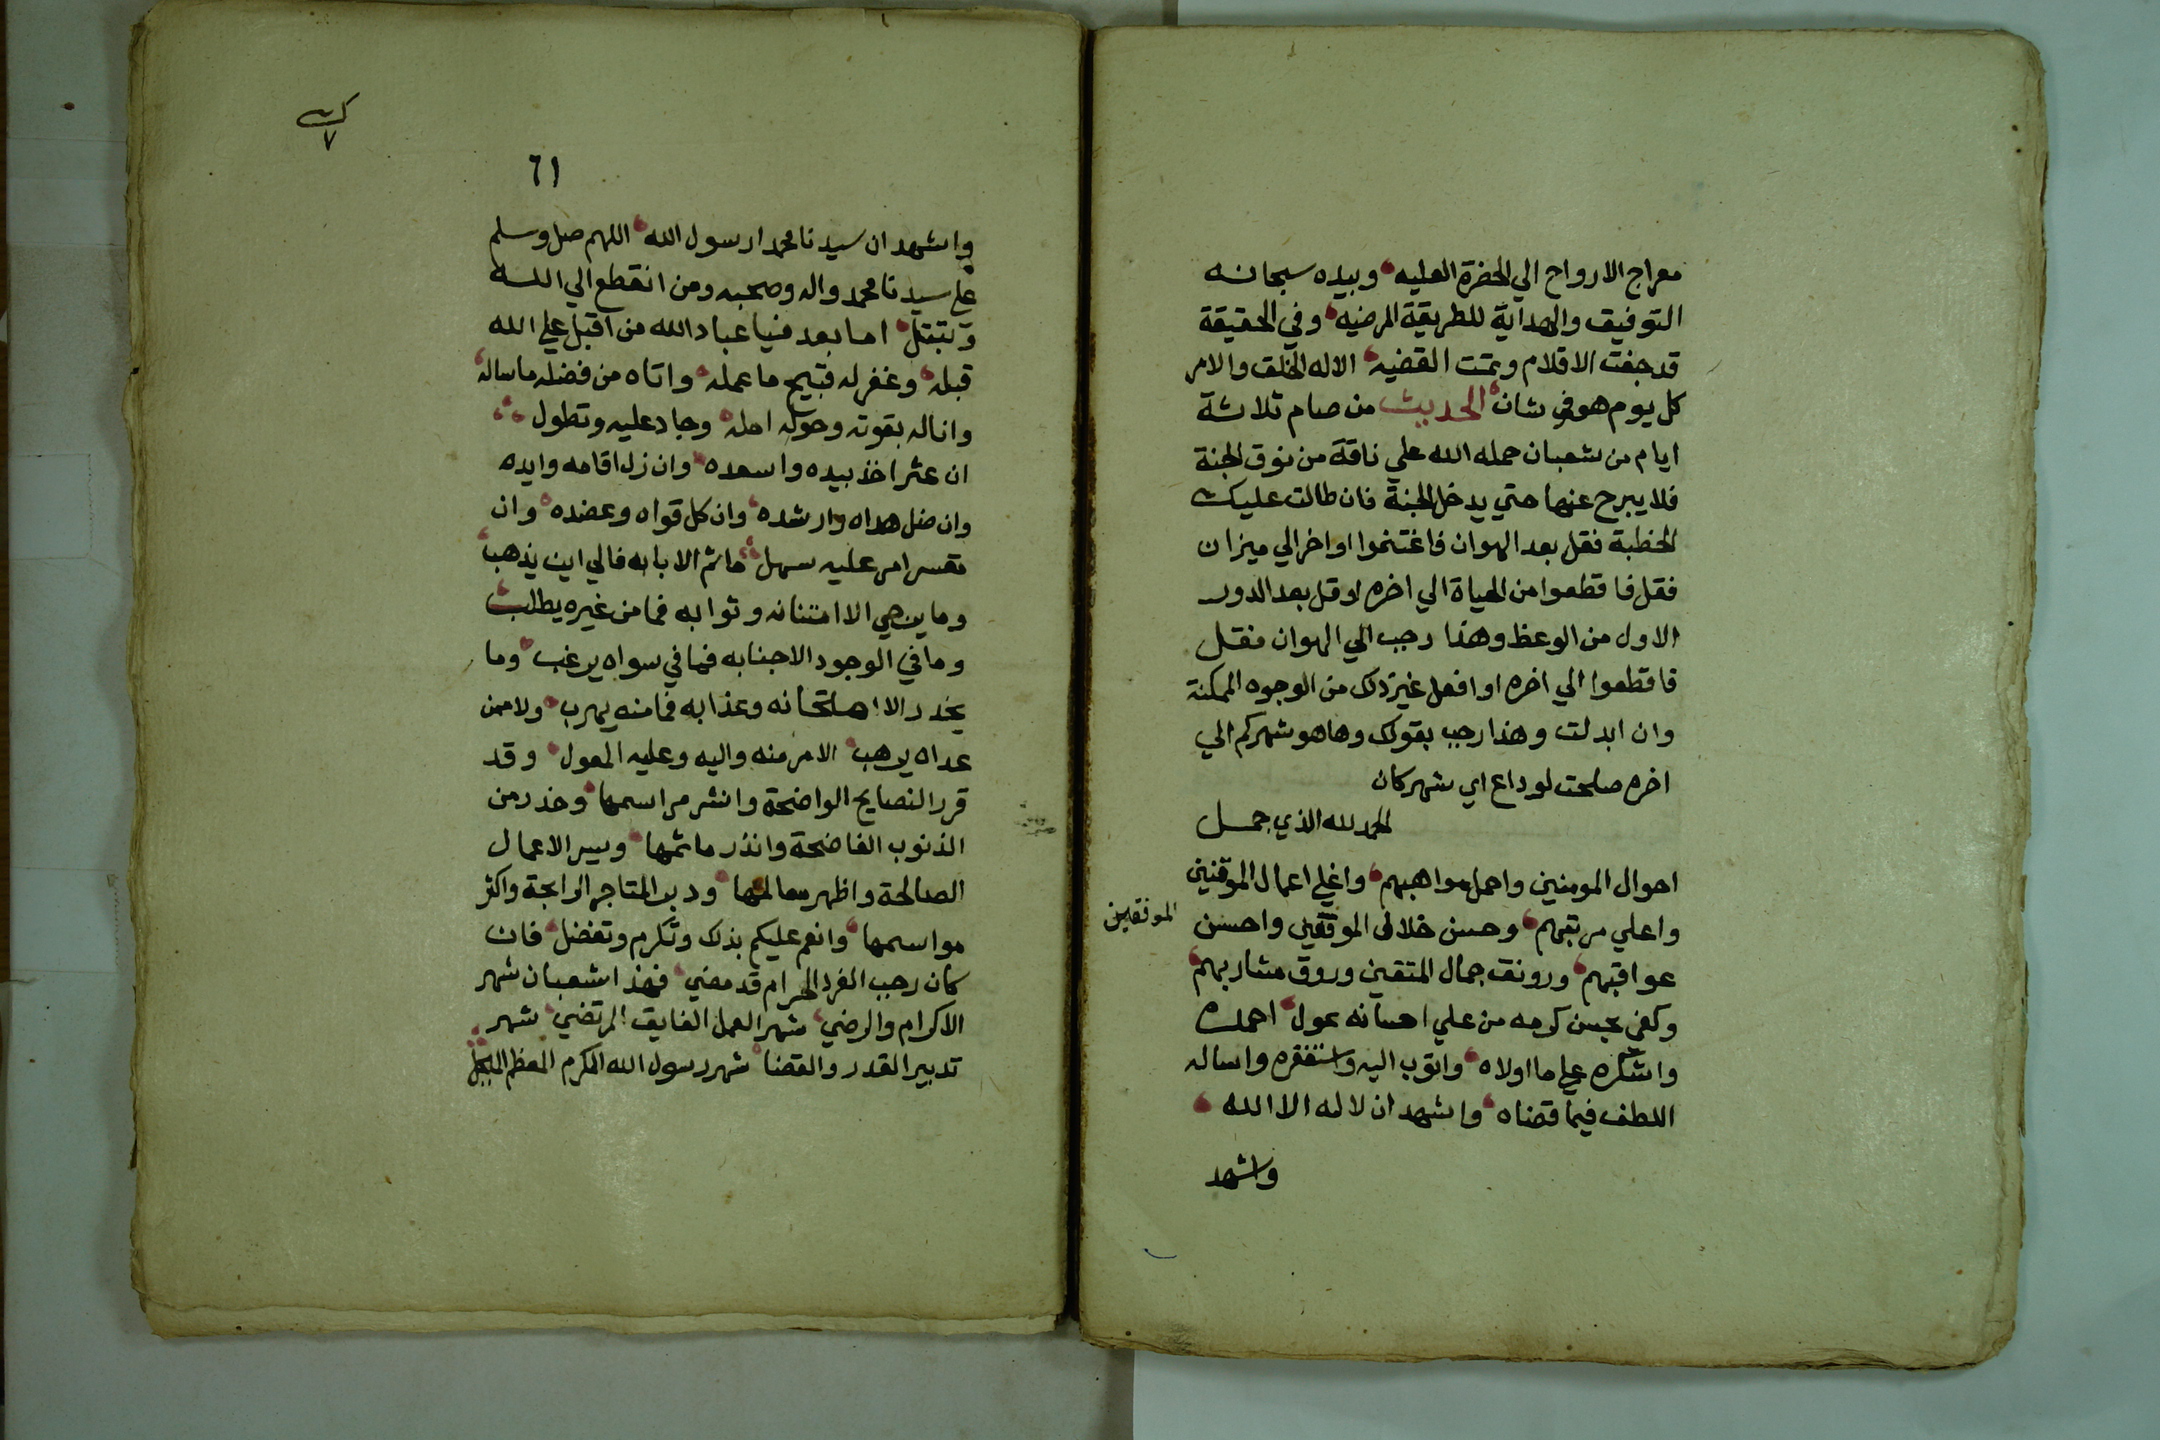 معراج الارواح الي الحضرة العليه وبيده سبحانه
التوفيق والهداية للطريقة المرضيه وفي الحقيقة
قد جفت الاقلام وتمت القضيه الا له الخلق والامر
كل يوم هو في شان الحديث من صام ثلاثة
ايام من شعبان حمله الله علي ناقة من نوق الجنة
فلا يبرح عنها حتي يدخل الجنة فان طالت عليك
الخطبة فقل بعد الهوان فاغتنموا اواخر الي ميزان
فقل فاقطعوا من الحياة الي اخره او قل بعد الدور
الاول من الوعظ وهذا رجب الي الهوان فقل
فاقطعوا الي اخره او افعل غير ذلك من الوجوه الممكنة
وان ابدلت وهذا رجب بقولك وها هو شهركم الي
اخره صلحت لوداع اي شهر كان
الحمد لله الذي جمل
احوال المومنين واجمل مواهبهم واغلي اعمال الموقنين
واعلي مرتبتهم وحسن خلال الموفقين واحسن
الموفقين
عواقبهم ورونق جمال المتقين وروق مشاربهم
وكفي بحسن كرمه من علي احسانه عول احمده
واشكره علي ما اولاه واتوب اليه واستغفره واساله
اللطف فيما قضاه واشهد ان لا اله الا الله
واشهد
٦١
واشهد ان سيدنا محمدا رسول الله اللهم صل وسلم
علي سيدنا محمد واله وصحبه ومن انقطع الي الله
وتبتل اما بعد فيا عباد الله من اقبل علي الله
قبله وغفر له قبيح ما عمله واتاه من فضله ما ساله
واناله بقوته وحوله امله وجاد عليه وتطول
ان عثر اخذ بيده واسعده وان زل اقامه وايده
وان ضل هداه وارشده وان كل قواه وعضده وان
تعسر امر عليه سهل ما ثم الا بابه فالي اين يذهب
وما يرتجي الا امتنانه وثوابه فما من غيره يطلب
وما في الوجود الا جنابه فما في سواه يرغب وما
يحذر الا امتحانه وعذابه فما منه يهرب ولا ممن
عداه يرهب الامر منه واليه وعليه المعول وقد
قرر النصايح الواضحة وانشر مراسمها وحذر من
الذنوب الفاضحة وانذر ماثمها ويسر الاعمال
الصالحة واظهر معالمها ودبر المتاجر الرابحة واكثر
مواسمها وانعم عليكم بذلك وتكرم وتفضل فان
كان رجب الفرد الحرام قد مضي فهذا شعبان شهر
الاكرام والرضي شهر العمل الفايق المرتضي شهر
تدبير القدر والقضا شهر رسول الله المكرم المعظم المبجل